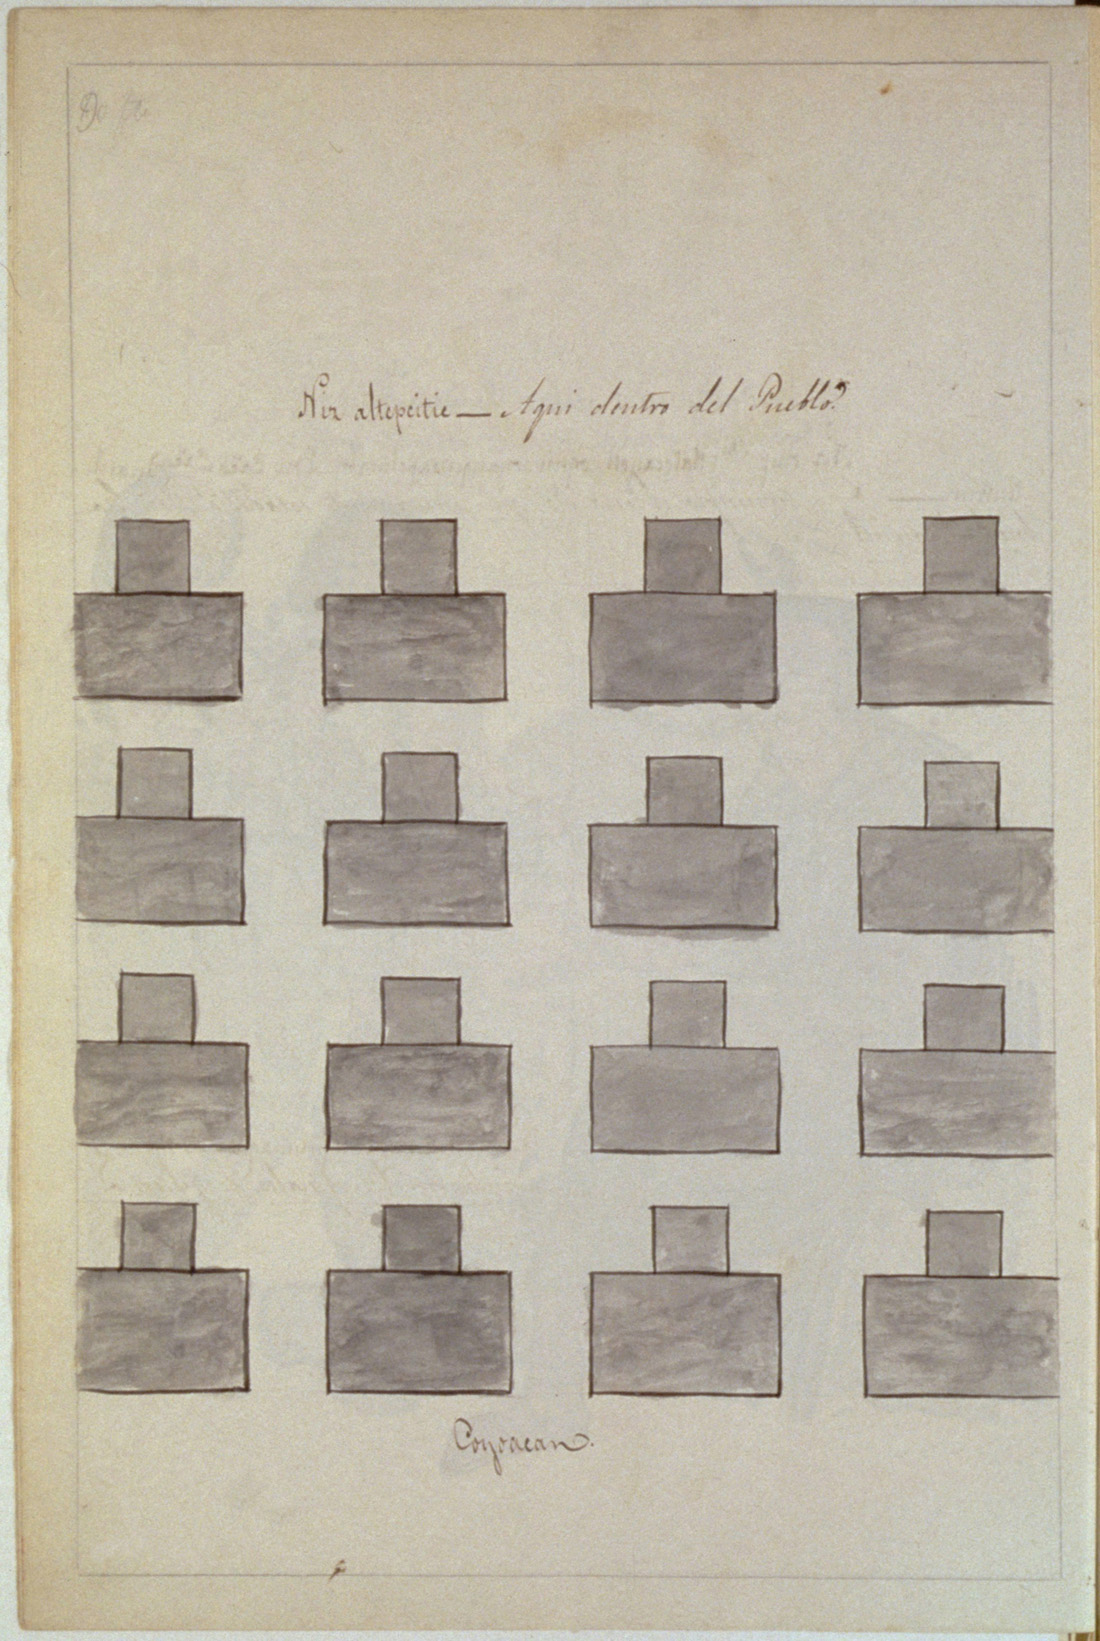 Niz altepeitic — Aqui dentro del Pueblo.
Coyoacan.